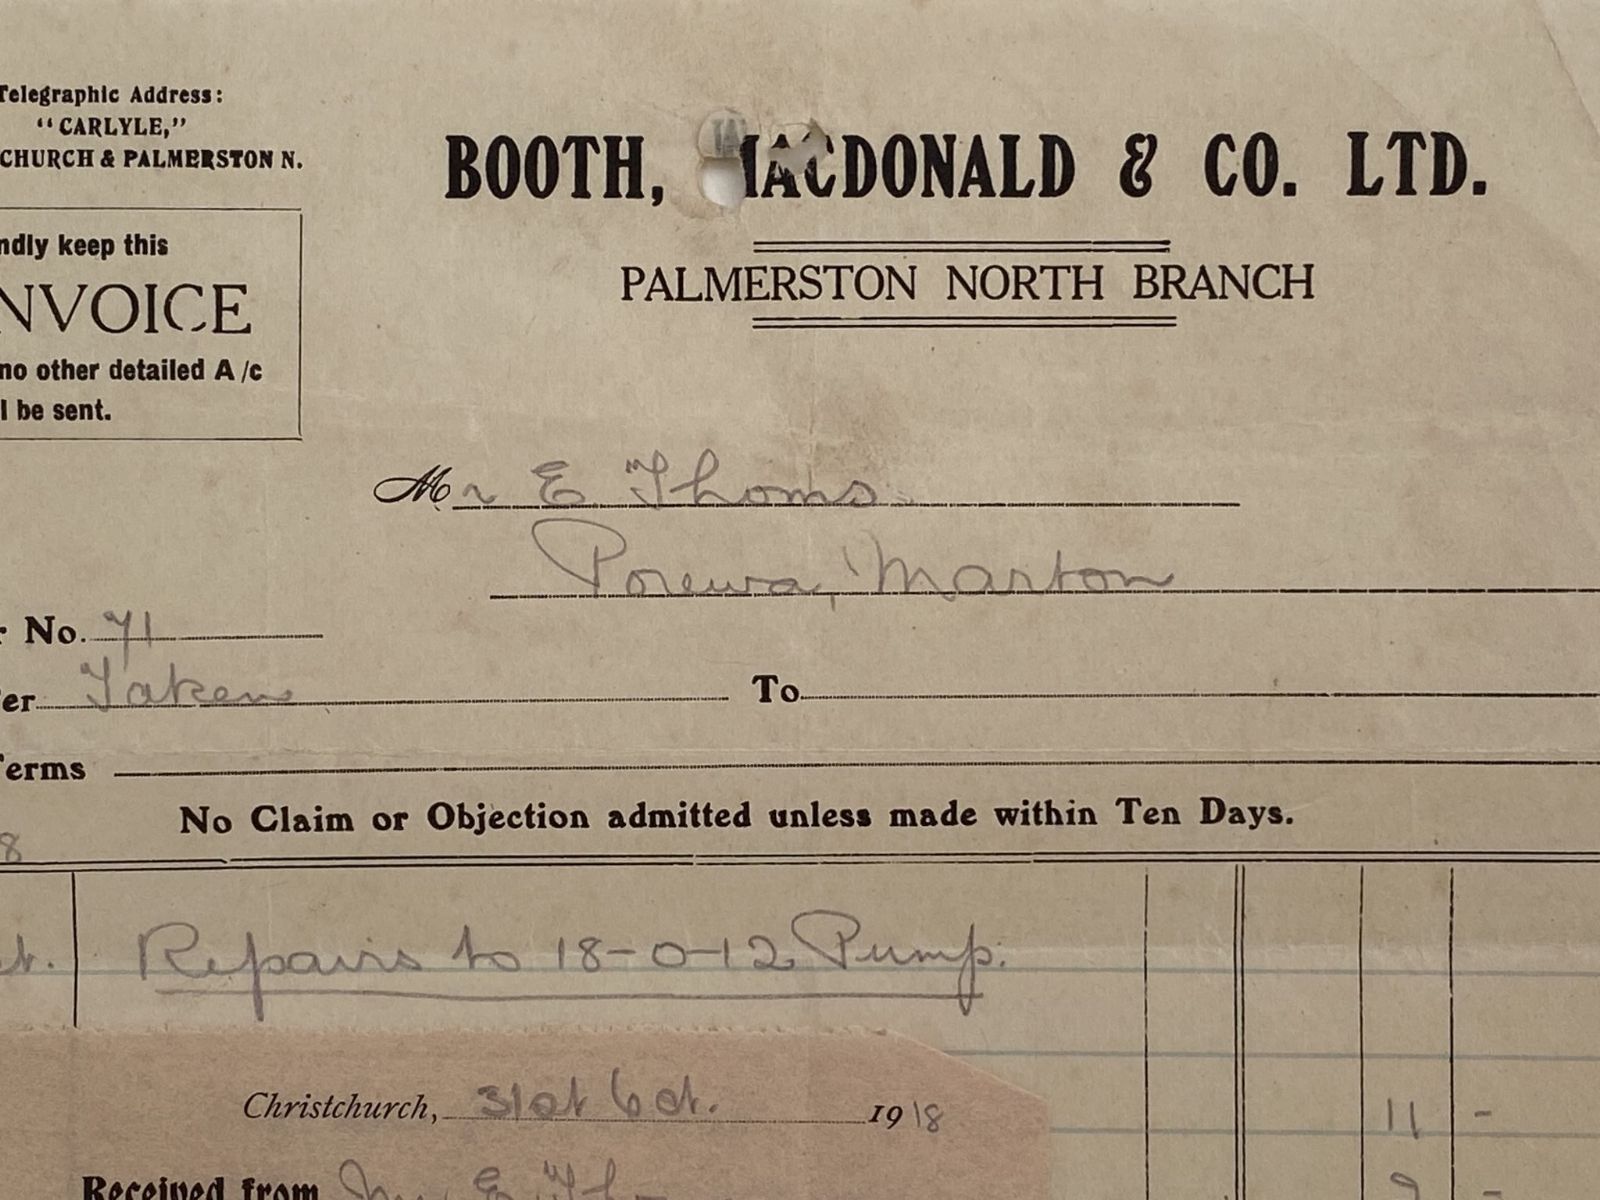 Telegraphic Address:
"CARLYLE,"
CHURCH & PALMERSTON N.
BOOTH, MACDONALD & CO. LTD.
PALMERSTON NORTH BRANCH
ndly keep this
NVOICE
no other detailed A/c
l be sent.
Mr E Thoms
Porewa, Marton
r No. 71
er Taken To
Terms
No Claim or Objection admitted unless made within Ten Days.
8
ct. Repairs to 18-0-12 Pump.
Christchurch, 31st Oct. 1918
11 -
Received from Mr E Th